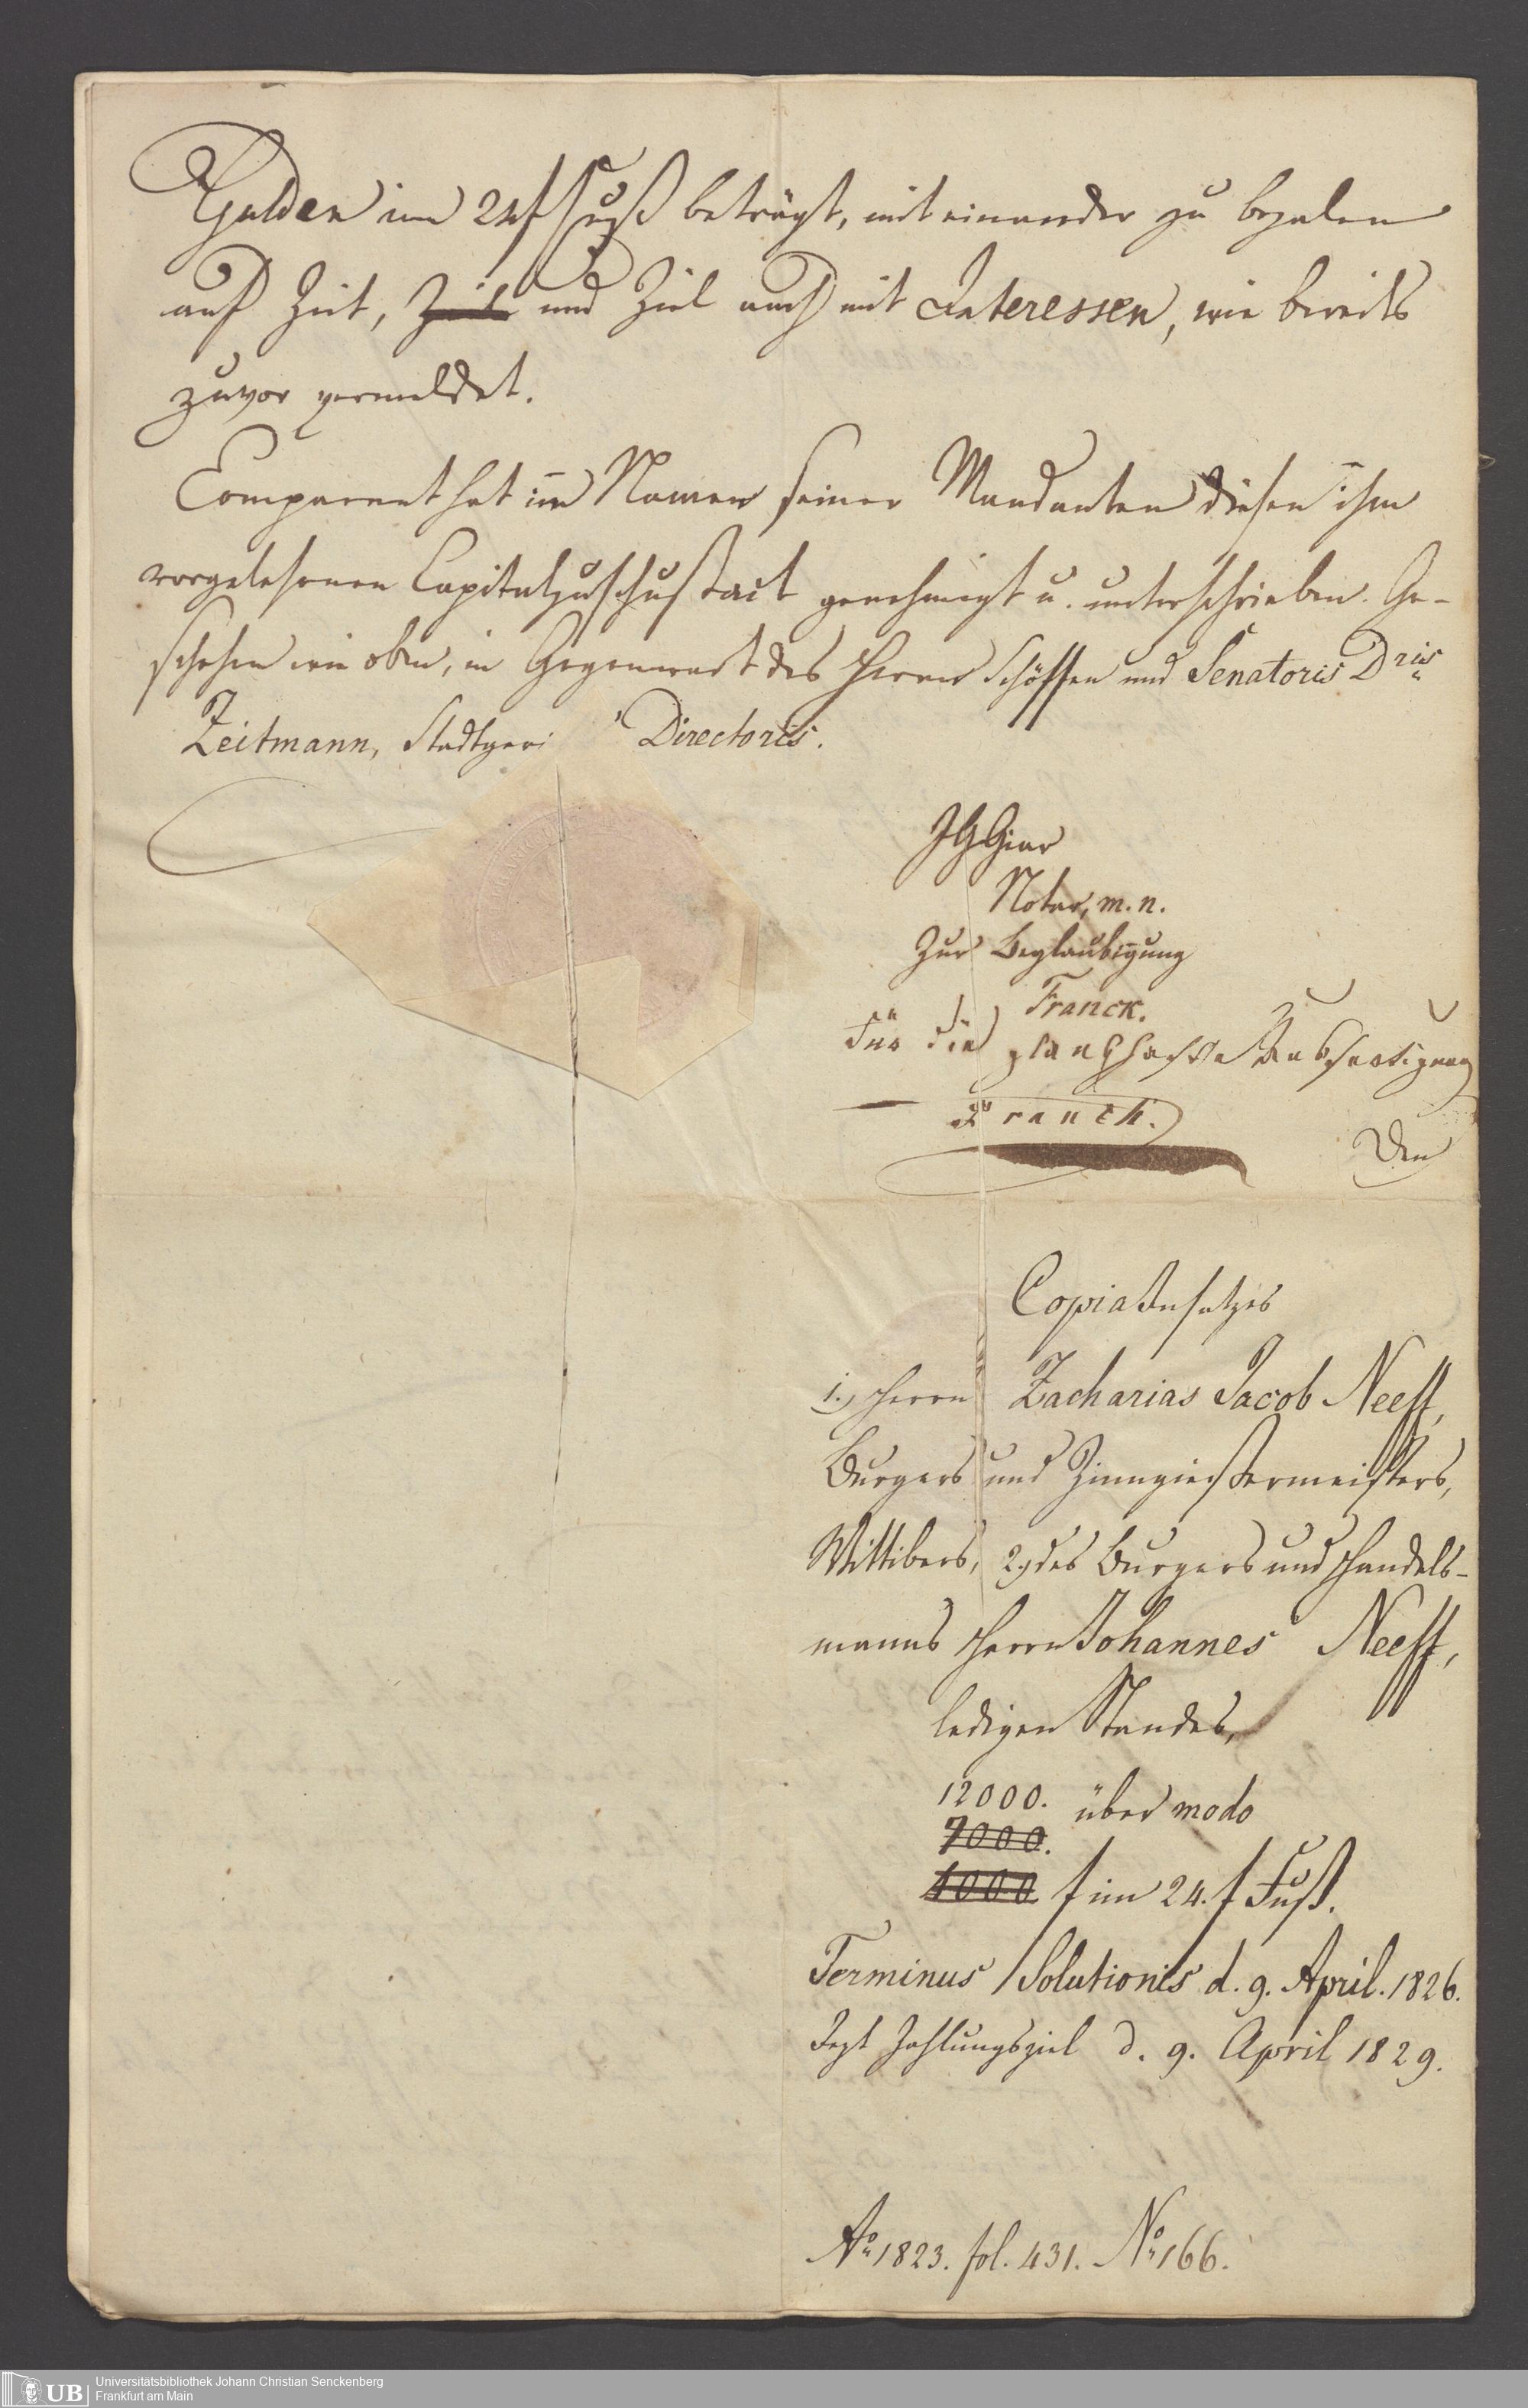 Gulden im 24f Fuß beträgt, mit einander zu bezalen
auf Zeit, Zeit und Ziel auch mit Interessen, wie bereits
zuvor vermeldet.
Comparent hat im Namen seiner Mandanten diesen ihm
vorgelesenen Capitalzuschußact genehmigt u. unterschrieben. Ge-
schehen wie oben, in Gegenwart des Herrn Schöffen und Senatoris Dris
Zeitmann, Stadtgeri Directoris.
Notar, m. n.
Zur Beglaubigung
Franck.
Für die glaubhafte Ausfertigung
Franck.
Den
Copia Insatzes
1., Herrn Zacharias Jacob Neeff,
Burgers und Zinngießermeisters,
Wittibers, 2., des Burgers und Handels-
manns Herrn Johannes Neeff,
ledigen Standes,
12000. über modo
7000.
4000 f im 24. f Fuß.
Terminus Solutionis d. 9. April. 1826.
Jezt Zahlungsziel d. 9. April 1829.
Ao 1823. fol. 431. No 166.
UB
Universitätsbibliothek Johann Christian Senckenberg
Frankfurt am Main